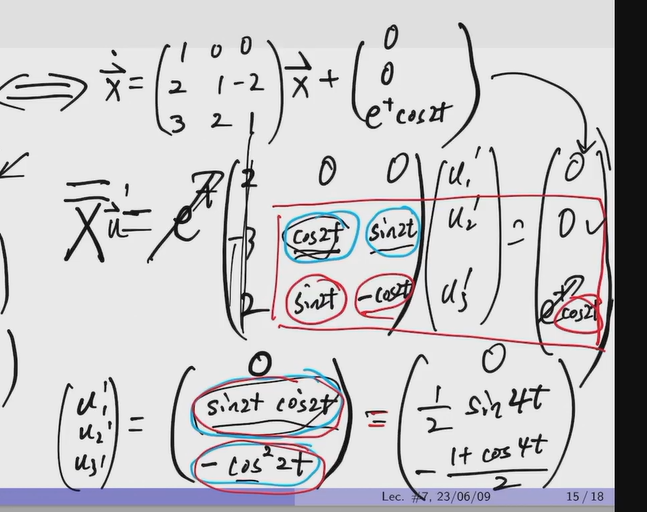 ⟺ ẋ⃗ = ( 1 0 0 ; 2 1 -2 ; 3 2 1 ) x⃗ + ( 0 ; 0 ; e^t cos2t )
X u⃗' = e^t ( 2 0 0 ; -3 cos2t sin2t ; 2 sin2t -cos2t ) ( u₁' ; u₂' ; u₃' ) = ( 0 ; 0 ; e^t cos2t )
( u₁' ; u₂' ; u₃' ) = ( 0 ; sin2t cos2t ; -cos² 2t ) = ( 0 ; 1/2 sin 4t ; - (1 + cos 4t)/2 )
Lec. #7, 23/06/09 15 / 18